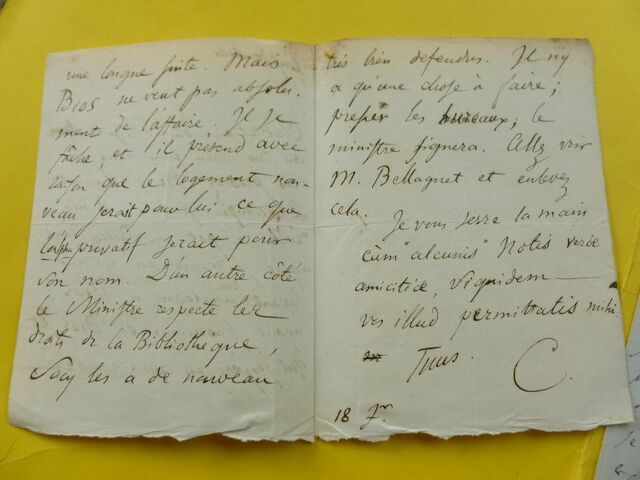 une longue suite. Mais
Bios ne veut pas absolu-
ment de l'affaire. Il se
fâche, et il prétend avec
raison que le logement nou-
veau serait pour lui ce que
privatif serait pour
son nom. D'un autre côté
le Ministre respecte les
droits de la Bibliothèque,
Sacy les a de nouveau
très bien défendus. Il n'y
a qu'une chose à faire;
presser les bureaux; le
ministre signera. Allez voir
M. Bellaguet et enlevez
cela.
Je vous serre la main
cum "alcunis" notis veræ
amicitiæ, siquidem
vos illud permittatis mihi.
Tuus. C.
18 Jr.